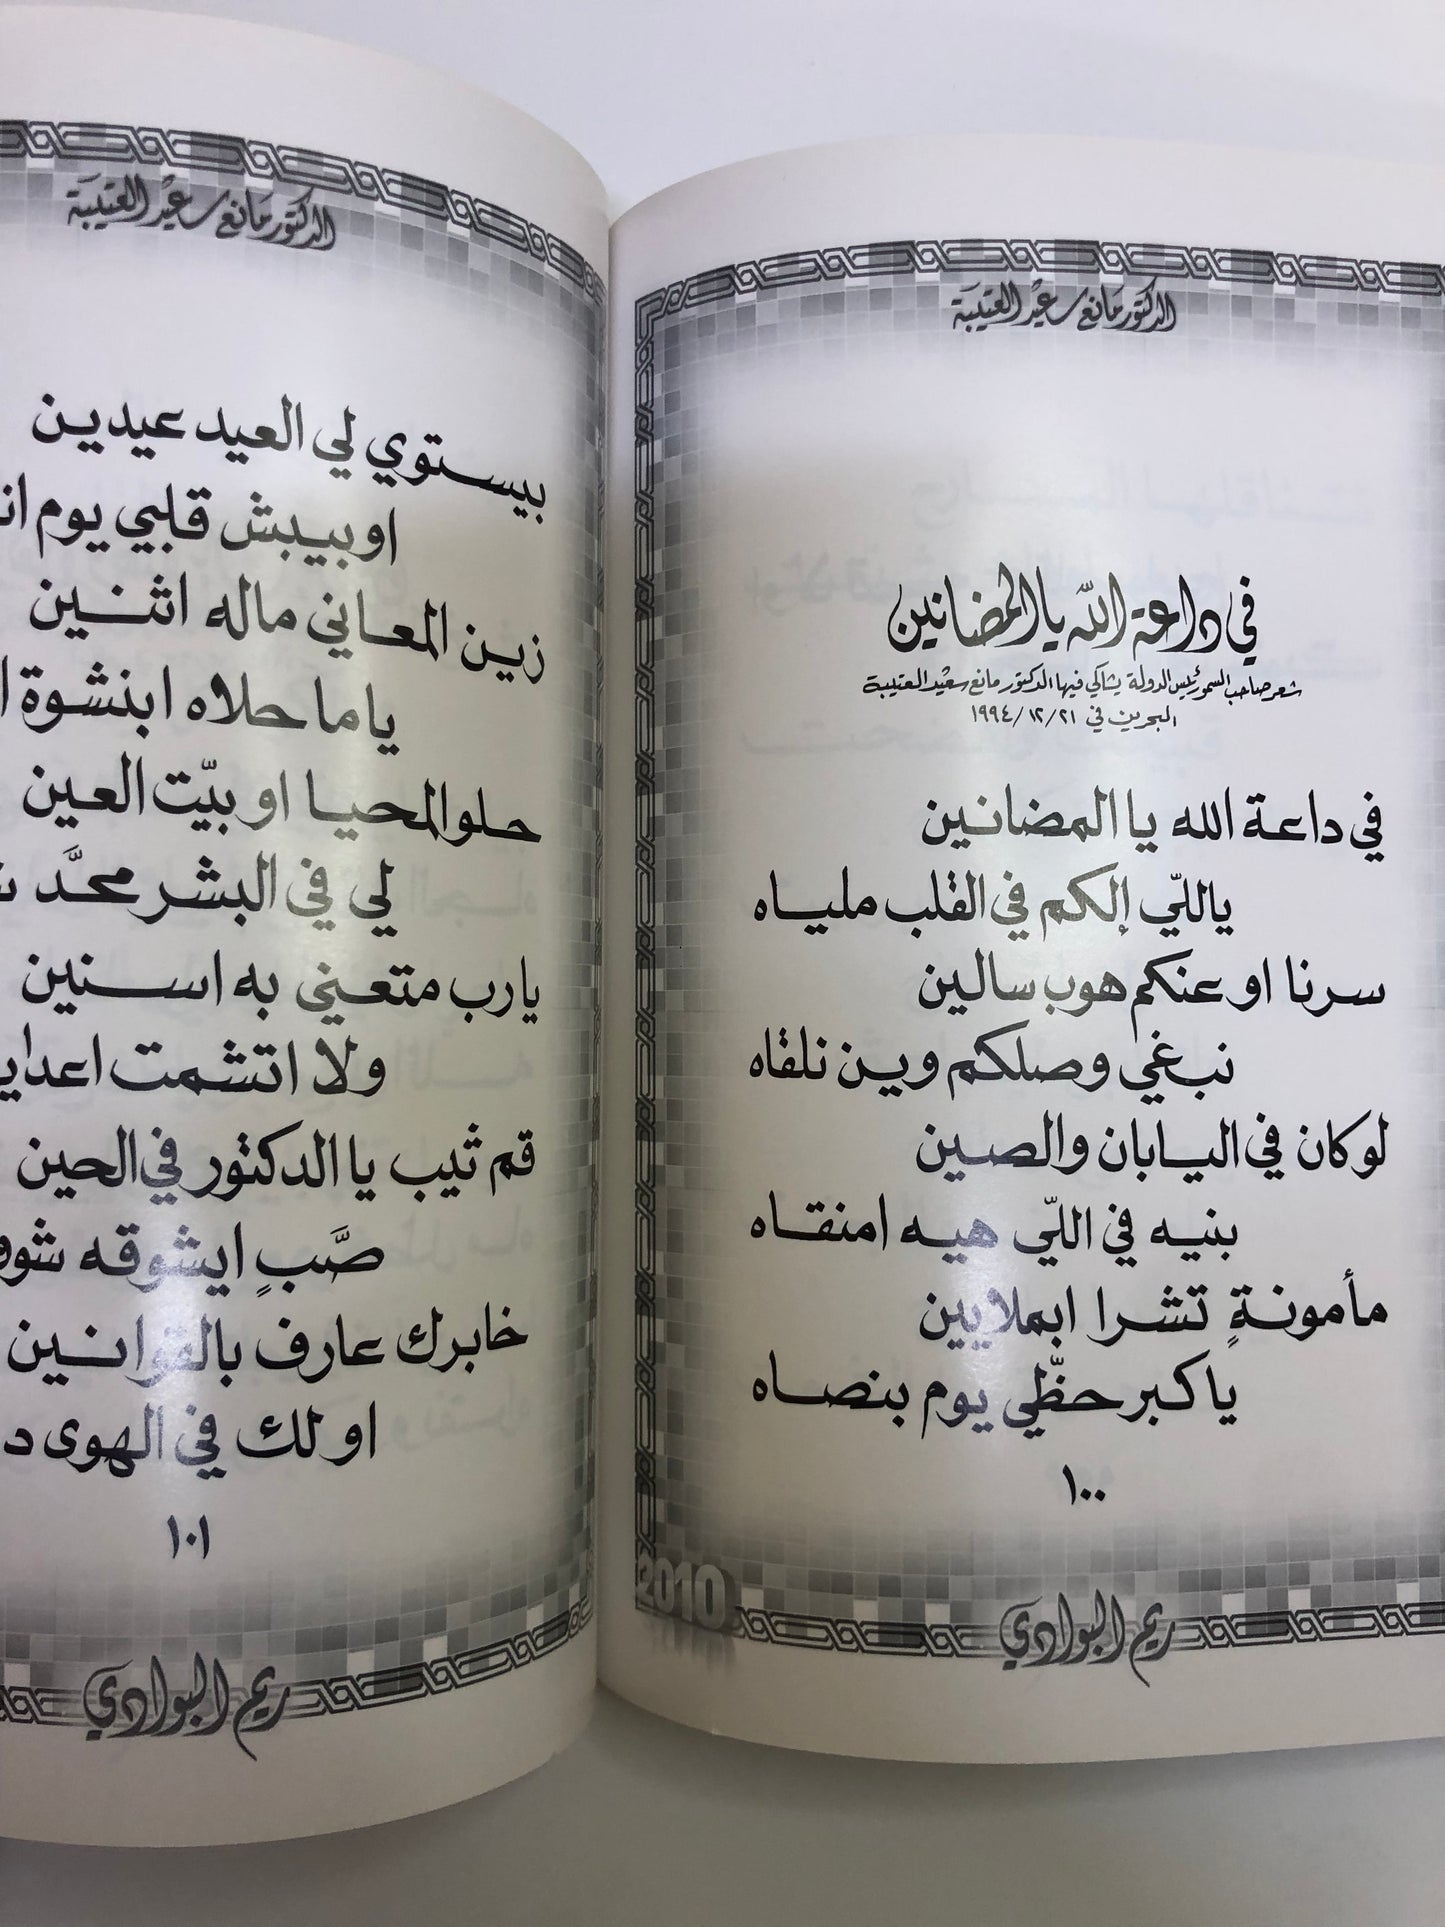 الدكتور مانع سعيد العتيبة
في داعة الله يا المضانين
شعر صاحب السمو رئيس الدولة يشاكي فيها الدكتور مانع سعيد العتيبة
البحرين في ٢١/ ١٢/ ١٩٩٤
في داعة الله يا المضانين
ياللّي إلكم في القلب ملياه
سرنا او عنكم هوب سالين
نبغي وصلكم وين نلقاه
لو كان في اليابان والصين
بنيه في اللّي هيه امنقاه
مأمونةٍ تشرا ابملايين
ياكبر حظّي يوم بنصاه
١٠٠
2010
ريم البوادي
الدكتور مانع سعيد العتيبة
بيستوي لي العيد عيدين
اوبيبش قلبي يوم
زين المعاني ماله اثنين
ياما حلاه ابنشوة
حلو المحيا او بيّت العين
لي في البشر محدَّ
يارب متعني به اسنين
ولا اتشمت
قم ثيب يا الدكتور في الحين
صَّبٍ ايشوقه
خابرك عارف بالقوانين
او لك في الهوى
١٠١
ريم البوادي